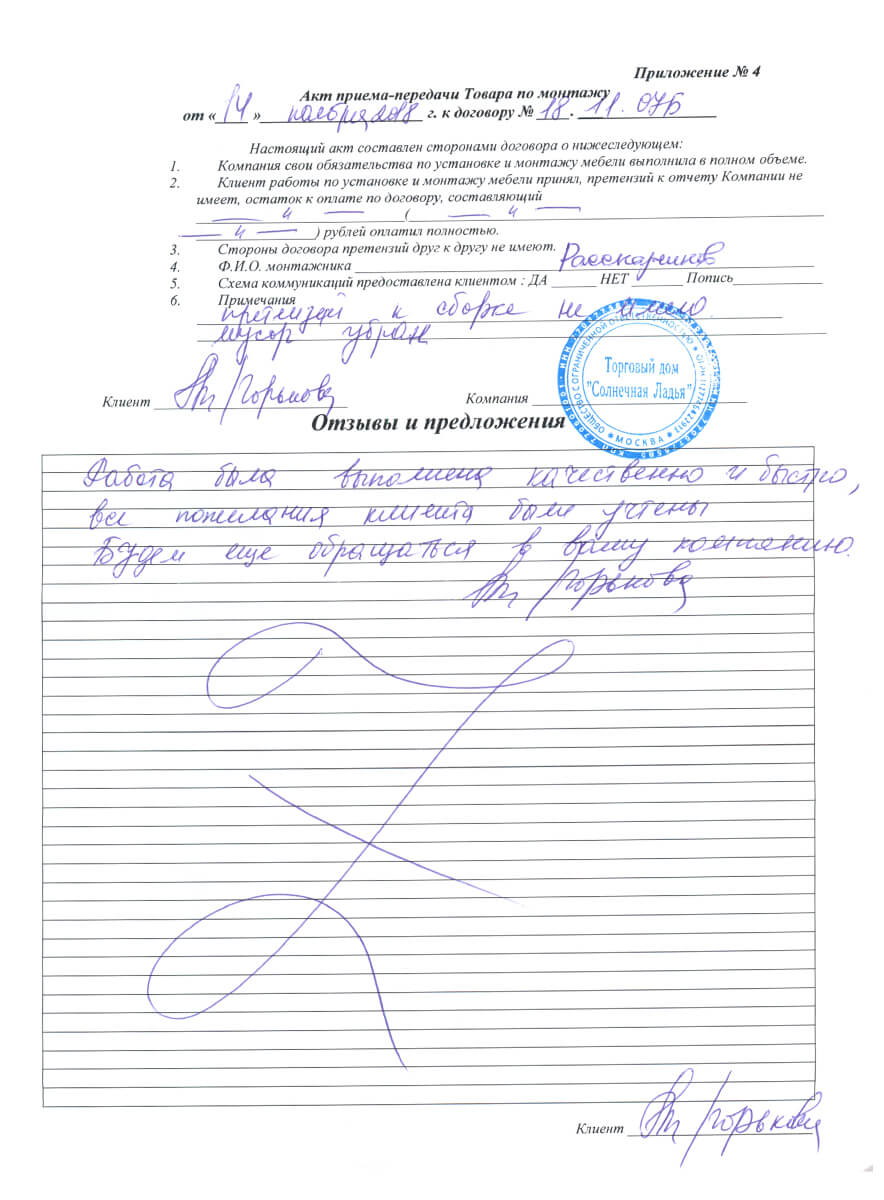 Приложение № 4
Акт приема-передачи Товара по монтажу
от «14» ноября 2018 г. к договору № 18. 11. 07Б
Настоящий акт составлен сторонами договора о нижеследующем:
1. Компания свои обязательства по установке и монтажу мебели выполнила в полном объеме.
2. Клиент работы по установке и монтажу мебели принял, претензий к отчету Компании не
имеет, остаток к оплате по договору, составляющий
— 4 — ( — 4 —
— 4 — ) рублей оплатил полностью.
3. Стороны договора претензий друг к другу не имеют.
4. Ф.И.О. монтажника Расскащиков
5. Схема коммуникаций предоставлена клиентом : ДА ______ НЕТ ______ Попись
6. Примечания
претензий к сборке не имею.
мусор убран
Торговый дом
"Солнечная Ладья"
ОБЩЕСТВО С ОГРАНИ�ченной ОТВЕТСТВЕННОСТЬЮ
МОСКВА
Клиент Горькова Компания
Отзывы и предложения
Работа была выполнена качественно и быстро,
все пожелания клиента были учтены
Будем еще обращаться в вашу компанию.
Горькова
Клиент Горькова